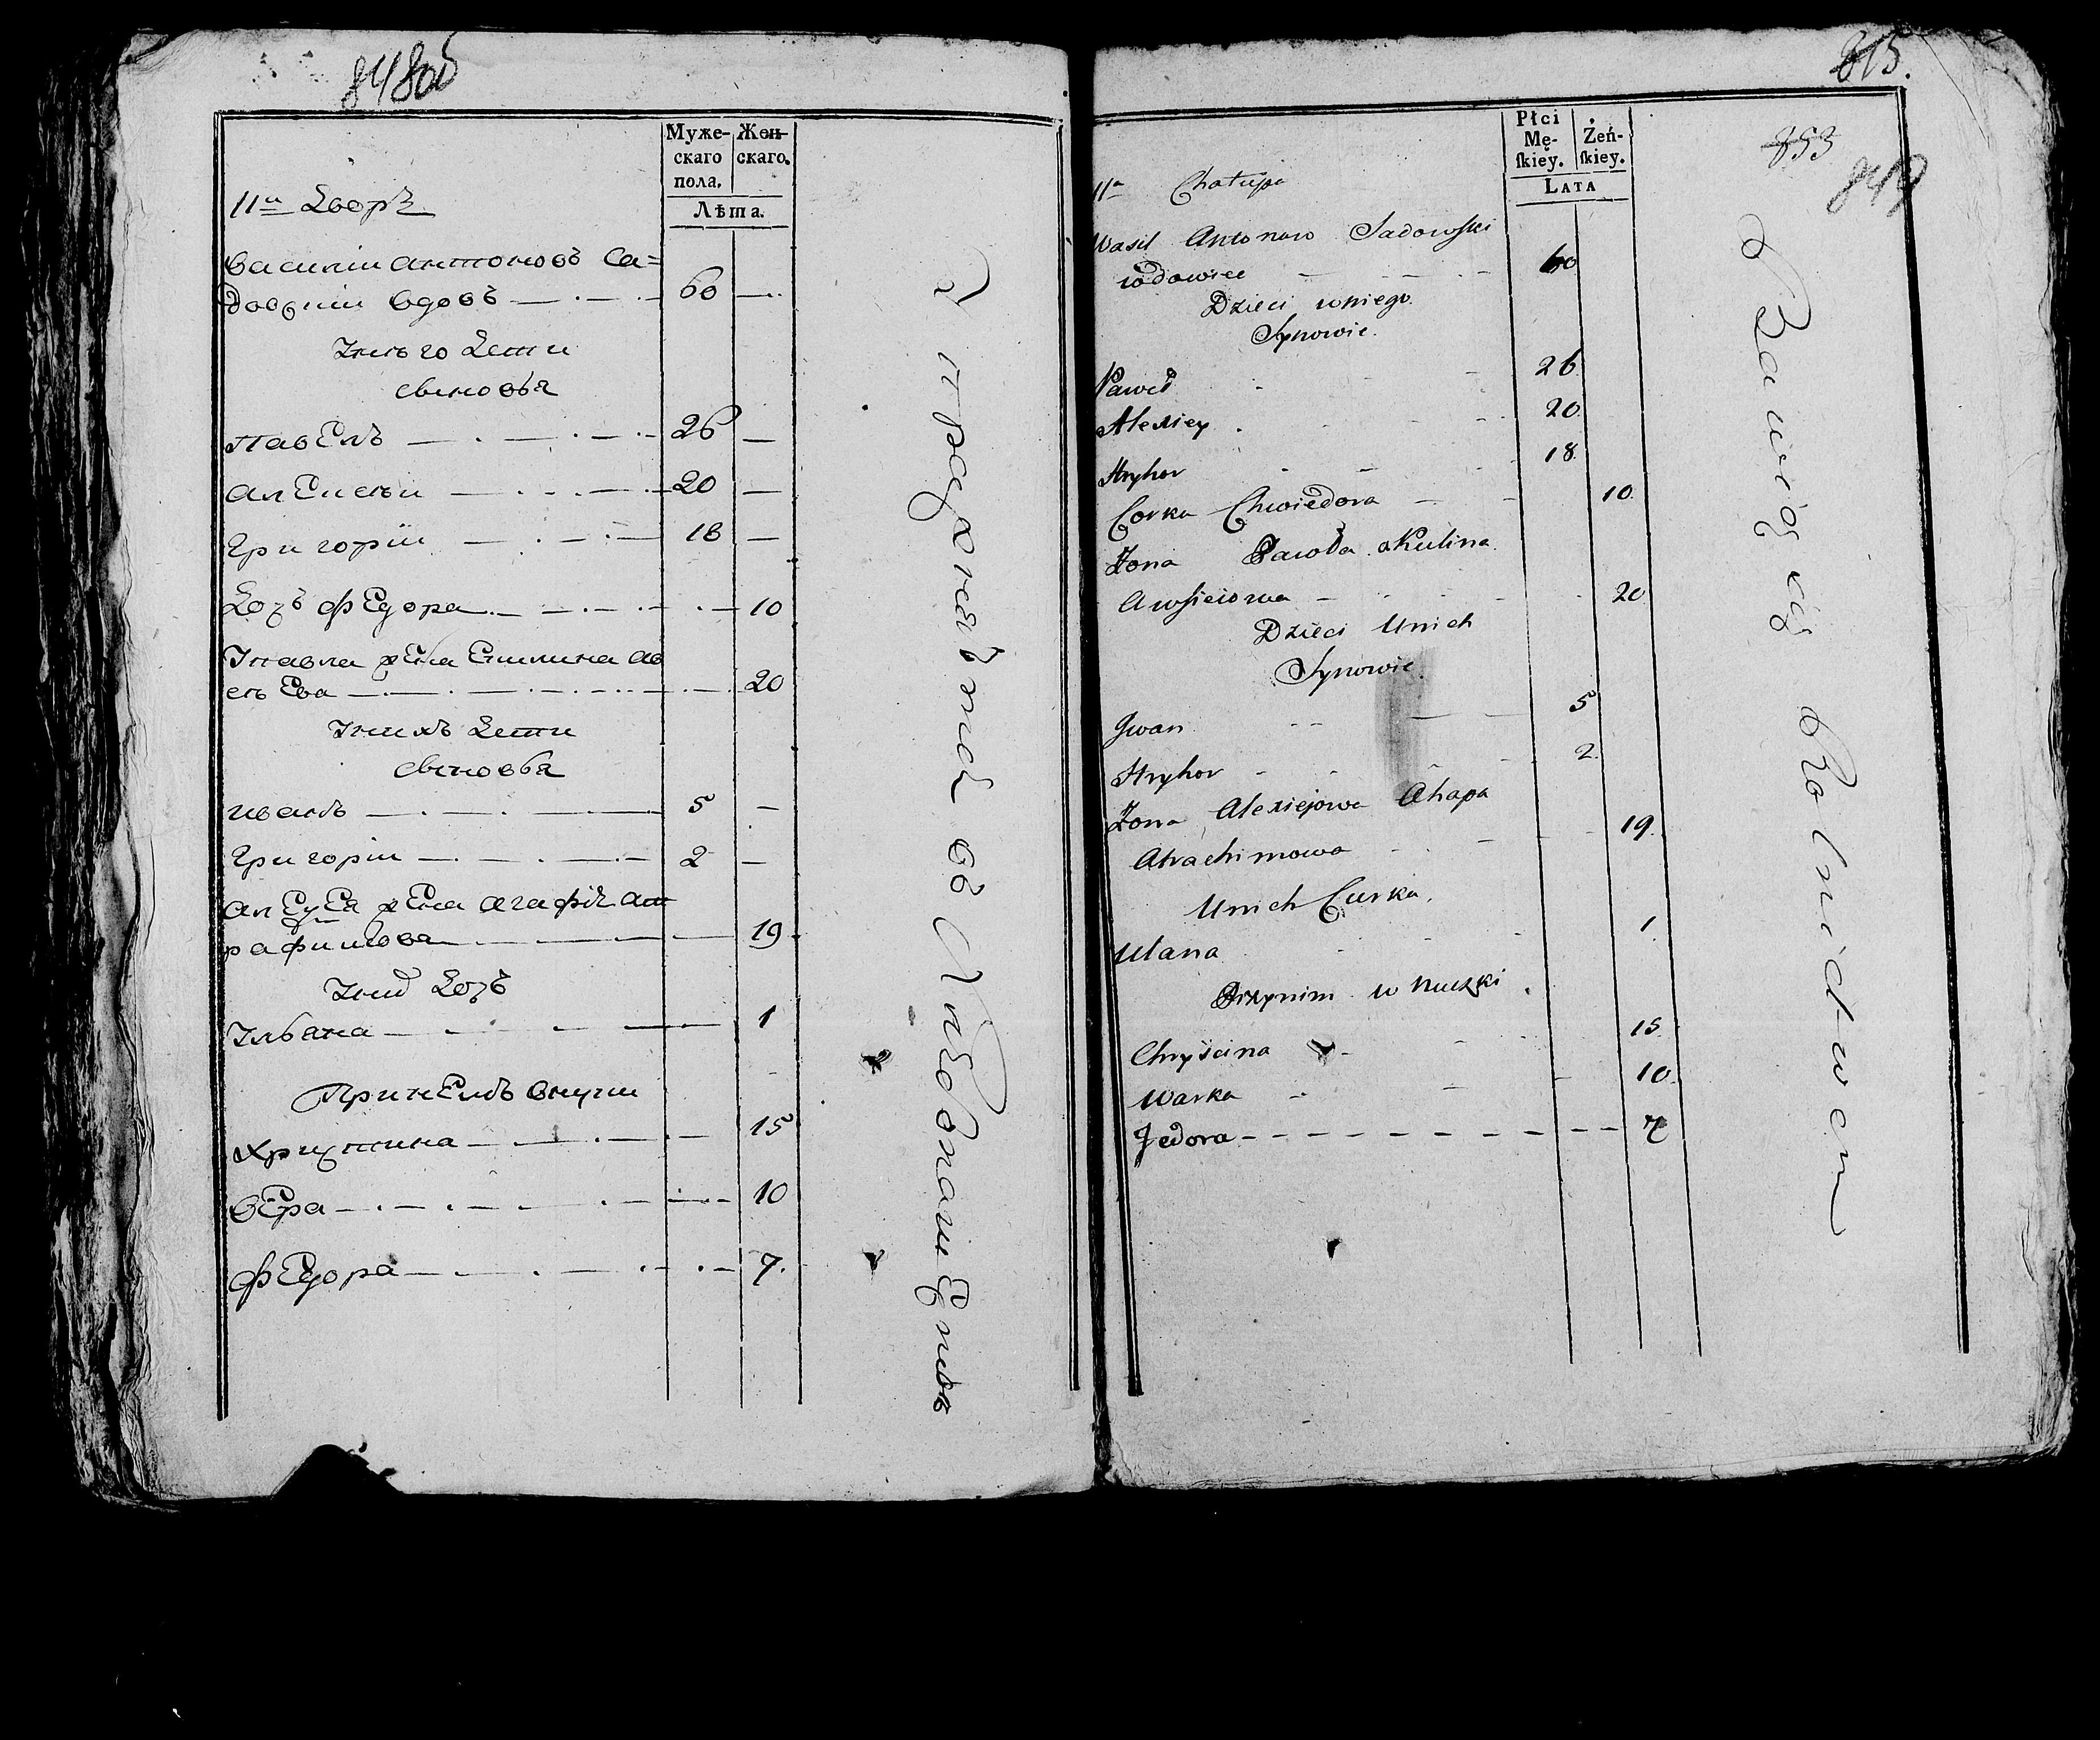 848об
Муже-
скаго
пола.
Жен-
скаго.
Лѣта.
11й Дворъ
Василіи антоновъ Са=
довскіи вдовъ — 60 —
Унѣго дети
сыновья
павелъ — 26 —
алексеи — 20 —
григоріи — 18 —
Дочь федора — 10
Упавла жена
20
Унихъ дети
сыновья
иванъ — 5 —
григоріи — 2 —
жена агафія
19
Унихъ Дочь
Ульяна — 1
Принемъ внучки
христина — 15
вера — 10
федора — 7.
815.
853
849
Płci
Mę-
ſkiey.
Żeń-
ſkiey.
LATA
11a Chałupa
Wasil Antonow Sadowski
wdowiec — 60
Dzieci wniego
Synowie.
Paweł 26
Alexiey 20
Hryhor 18
Corka Chwiedora 10
Żona Pawła akulina
Awsieiowa 20
Dzieci Unich
Synowie
Jwan 5
Hryhor 2
Żona Alexiejowa Ahapa
Atrachimowa 19
Unich Curka.
Ulana 1.
Przynim wnuczki
Chryścina 15
Warka 10
Fedora 7